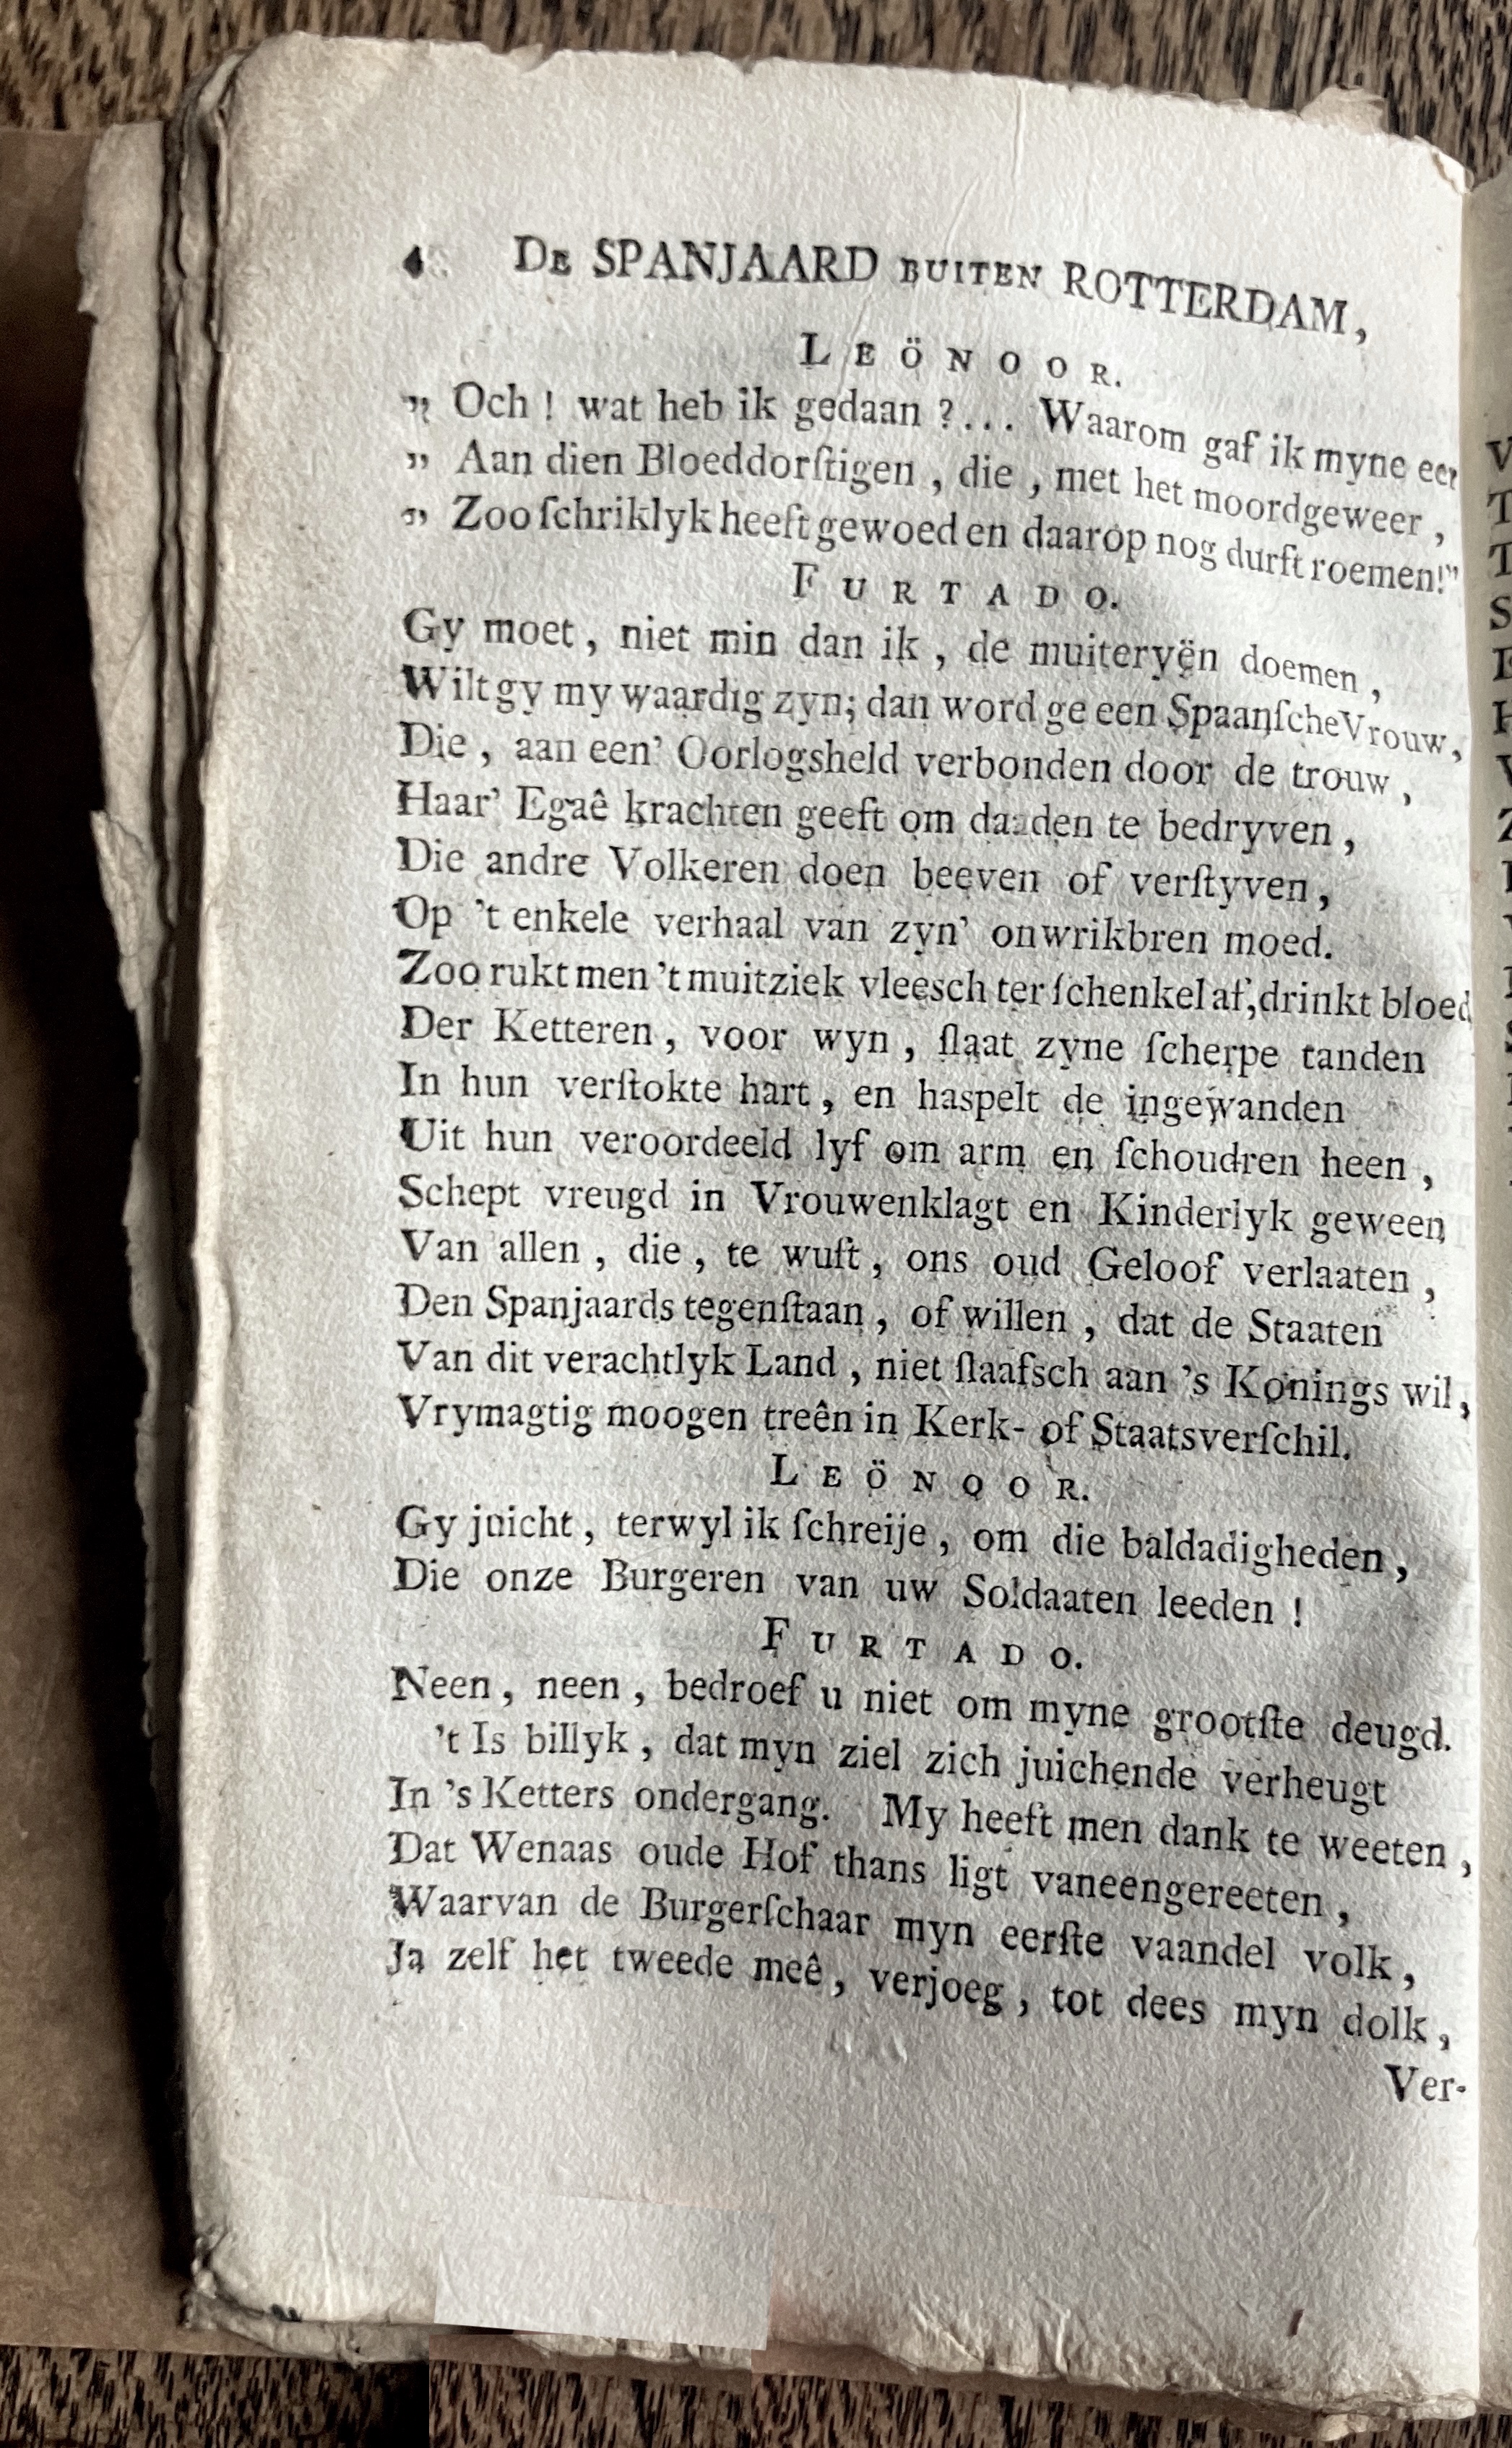 4 De SPANJAARD BUITEN ROTTERDAM,
LEÖNOOR.
„ Och ! wat heb ik gedaan ?... Waarom gaf ik myne eer
„ Aan dien Bloeddorſtigen , die , met het moordgeweer ,
„ Zoo ſchriklyk heeft gewoed en daarop nog durft roemen!”
FURTADO.
Gy moet , niet min dan ik , de muiteryën doemen ,
Wilt gy my waardig zyn; dan word ge een Spaanſche Vrouw,
Die , aan een’ Oorlogsheld verbonden door de trouw ,
Haar’ Egaê krachten geeft om daaden te bedryven ,
Die andre Volkeren doen beeven of verſtyven ,
Op ’t enkele verhaal van zyn’ onwrikbren moed.
Zoo rukt men ’t muitziek vleesch ter ſchenkel af, drinkt bloed
Der Ketteren , voor wyn , ſlaat zyne ſcherpe tanden
In hun verſtokte hart , en haspelt de ingewanden
Uit hun veroordeeld lyf om arm en ſchoudren heen ,
Schept vreugd in Vrouwenklagt en Kinderlyk geween
Van allen , die , te wuſt , ons oud Geloof verlaaten ,
Den Spanjaards tegenſtaan , of willen , dat de Staaten
Van dit verachtlyk Land , niet ſlaafsch aan ’s Konings wil ,
Vrymagtig moogen treên in Kerk- of Staatsverſchil.
LEÖNOOR.
Gy juicht , terwyl ik ſchreije , om die baldadigheden ,
Die onze Burgeren van uw Soldaaten leeden !
FURTADO.
Neen , neen , bedroef u niet om myne grootſte deugd.
’t Is billyk , dat myn ziel zich juichende verheugt
In ’s Ketters ondergang. My heeft men dank te weeten ,
Dat Wenaas oude Hof thans ligt vaneengereeten ,
Waarvan de Burgerſchaar myn eerſte vaandel volk ,
Ja zelf het tweede meê , verjoeg , tot dees myn dolk ,
Ver-